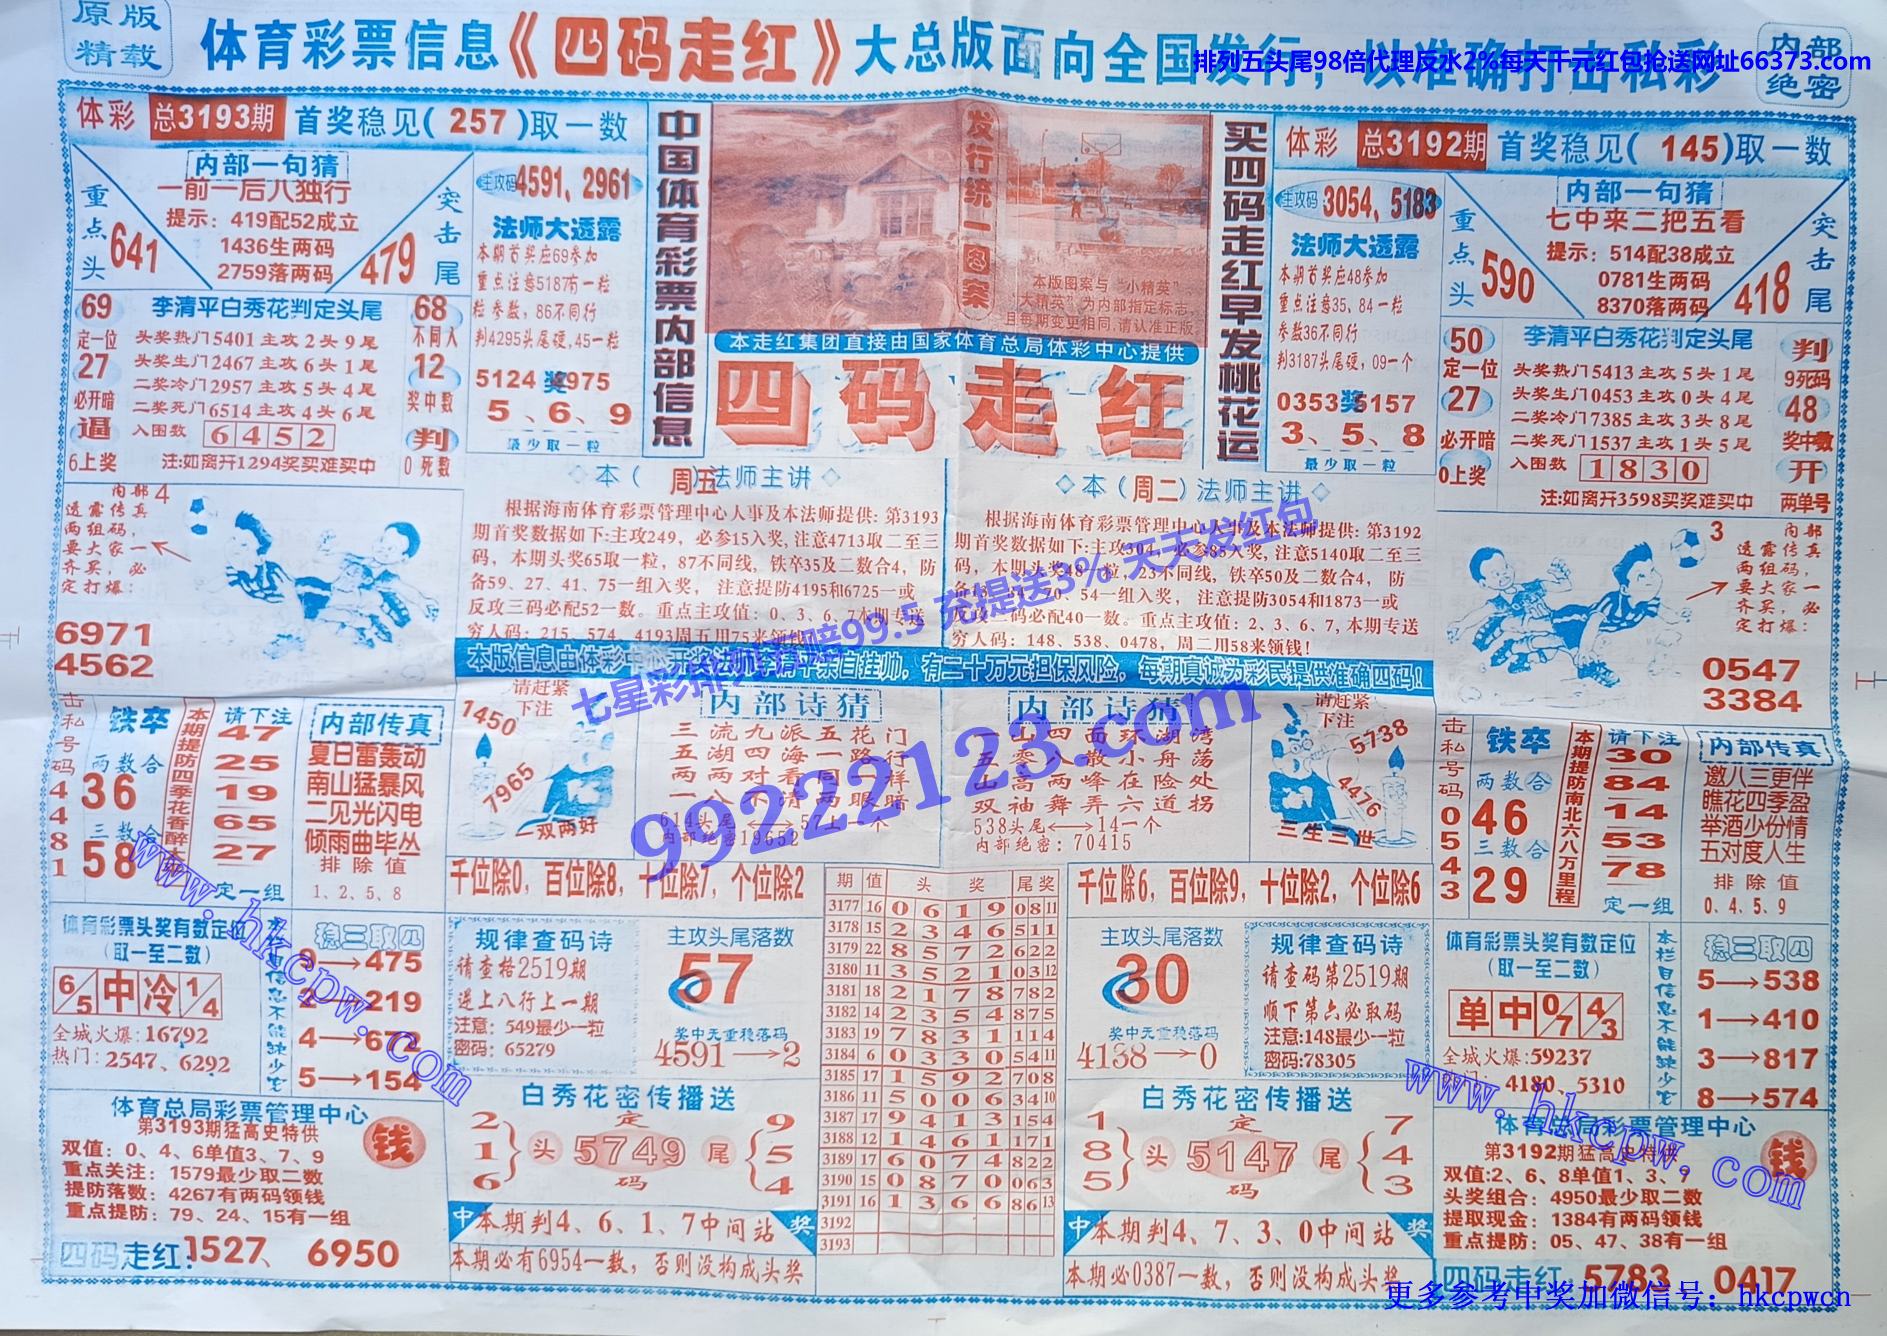 原版
精载
体育彩票信息《四码走红》大总版面向全国发行，以准确打击私彩
内部
绝密
排列五头尾98倍代理反水2%每天千元红包抢送网址66373.com
体彩 总3193期 首奖稳见(257)取一数
内部一句猜
一前一后八独行
提示：419配52成立
1436生两码
2759落两码
重点头
641
突击尾
479
主攻码4591、2961
法师大透露
本期首奖应69参加
重点注意5187有一
粒参数，86不同行
判4295头尾硬，45一粒
5124奖4975
5、6、9
最少取一粒
69
定一位
27
必开暗
逼
6上奖
李清平白秀花判定头尾
头奖热门5401主攻2头9尾
头奖生门2467主攻6头1尾
二奖冷门2957主攻5头4尾
二奖死门6514主攻4头6尾
入围数 6452
注:如离开1294奖买难买中
68
不同人
12
奖中数
判
0死数
中国体育彩票内部信息
发行统一图案
本版图案与“小精英”
“大精英”为内部指定标志，
且每期变更相同,请认准正版
本走红集团直接由国家体育总局体彩中心提供
四码走红
买四码走红早发桃花运
体彩 总3192期 首奖稳见(145)取一数
主攻码3054、5183
法师大透露
本期首奖应48参加
重点注意35、84一粒
参数36不同行
判3187头尾硬，09一个
0353奖5157
3、5、8
最少取一粒
内部一句猜
七中来二把五看
提示：514配38成立
0781生两码
8370落两码
重点头
590
突击尾
418
50
定一位
27
必开暗
0上奖
李清平白秀花判定头尾
头奖热门5413主攻5头1尾
头奖生门0453主攻0头4尾
二奖冷门7385主攻3头8尾
二奖死门1537主攻1头5尾
入围数 1830
注:如离开3598买奖难买中
判
9死码
48
奖中数
开
两单号
内部 4
透露传真
两组码，
要大家一
齐买，必
定打爆：
6971
4562
本（周五）法师主讲
根据海南体育彩票管理中心人事及本法师提供: 第3193
期首奖数据如下:主攻249，必参15入奖, 注意4713取二至三
码，本期头奖65取一粒，87不同线, 铁卒35及二数合4，防
备59、27、41、75一组入奖， 注意提防4195和6725一或
反攻三码必配52一数。重点主攻值: 0、3、6、7本期专送
穷人码: 215、574、4193周五用75来领钱!
本（周二）法师主讲
根据海南体育彩票管理中心人事及本法师提供: 第3192
期首奖数据如下:主攻304，必参85入奖, 注意5140取二至三
码，本期头奖48一粒，23不同线, 铁卒50及二数合4，防
54一组入奖， 注意提防3054和1873一或
码必配40一数。重点主攻值: 2、3、6、7, 本期专送
穷人码: 148、538、0478，周二用58来领钱!
3 内部
透露传真
两组码，
要大家一
齐买，必
定打爆：
0547
3384
七星彩排列五赔99.5 充提送3% 天天发红包
有二十万元担保风险，每期真诚为彩民提供准确四码!
击私号码4481
铁卒
两数合
36
三数合
58
请下注
47
25
19
65
27
定一组
内部传真
夏日雷轰动
南山猛暴风
二见光闪电
倾雨曲毕丛
排除值
1、2、5、8
请赶紧下注
1450
7965
一双两好
内部诗猜
三流九派五花门
五湖四海一路行
两两对看同一样
一八不清两眼暗
614头尾⟷57上一个
内部绝密19652
内部诗猜
一山四面环湖湾
五零八散小舟荡
山高两峰在险处
双袖舞弄六道拐
538头尾⟷14一个
内部绝密：70415
请赶紧下注
5738
4476
三生三世
击私号码0543
铁卒
两数合
46
三数合
29
本期提防南北六八万里程
请下注
30
84
14
53
78
定一组
内部传真
邀八三更伴
瞧花四季盈
举酒少份情
五对度人生
排除值
0、4、5、9
99222123.com
千位除0，百位除8，十位除7，个位除2
千位除6，百位除9，十位除2，个位除6
体育彩票头奖有数定位
(取一至二数)
6/5 中冷 1/4
全城火爆：16792
热门：2547、6292
稳三取四
9→475
2→219
4→672
5→154
规律查码诗
请查格2519期
遇上八行上一期
注意：549最少一粒
密码：65279
主攻头尾落数
57
奖中无重稳落码
4591→2
期 值 头奖 尾奖
3177 16 0619 08 11
3178 15 2346 51 1
3179 22 8572 62 2
3180 11 3521 03 12
3181 18 2178 78 2
3182 14 2354 87 5
3183 19 7831 11 4
3184 6 0330 54 11
3185 17 1592 70 8
3186 11 5006 34 10
3187 17 9413 15 4
3188 12 1461 17 1
3189 17 6074 82 2
3190 15 0870 06 3
3191 16 1366 86 13
3192
3193
主攻头尾落数
30
奖中无重稳落码
4138→0
规律查码诗
请查码第2519期
顺下第六必取码
注意:148最少一粒
密码:78305
体育彩票头奖有数定位
(取一至二数)
单中 0/7 4/3
全城火爆:59237
4180、5310
本栏目信息不能缺少它
稳三取四
5→538
1→410
3→817
8→574
www.hkcpw.com
www.hkcpw.com
体育总局彩票管理中心
第3193期猛高史特供
双值：0、4、6单值3、7、9
重点关注：1579最少取二数
提防落数：4267有两码领钱
重点提防：79、24、15有一组
钱
四码走红:1527、6950
白秀花密传播送
2 1 6 头 定 5749 码 尾 9 5 4
中 本期判4、6、1、7中间站 奖
本期必有6954一数，否则没构成头奖
白秀花密传播送
1 8 5 头 定 5147 码 尾 7 4 3
中 本期判4、7、3、0中间站 奖
本期必0387一数，否则没构成头奖
第3192期猛高史特供
双值:2、6、8单值1、3、7
头奖组合：4950最少取二数
提取现金：1384有两码领钱
重点提防：05、47、38有一组
钱
四码走红 5783 0417
更多参考中奖加微信号：hkcpwcn